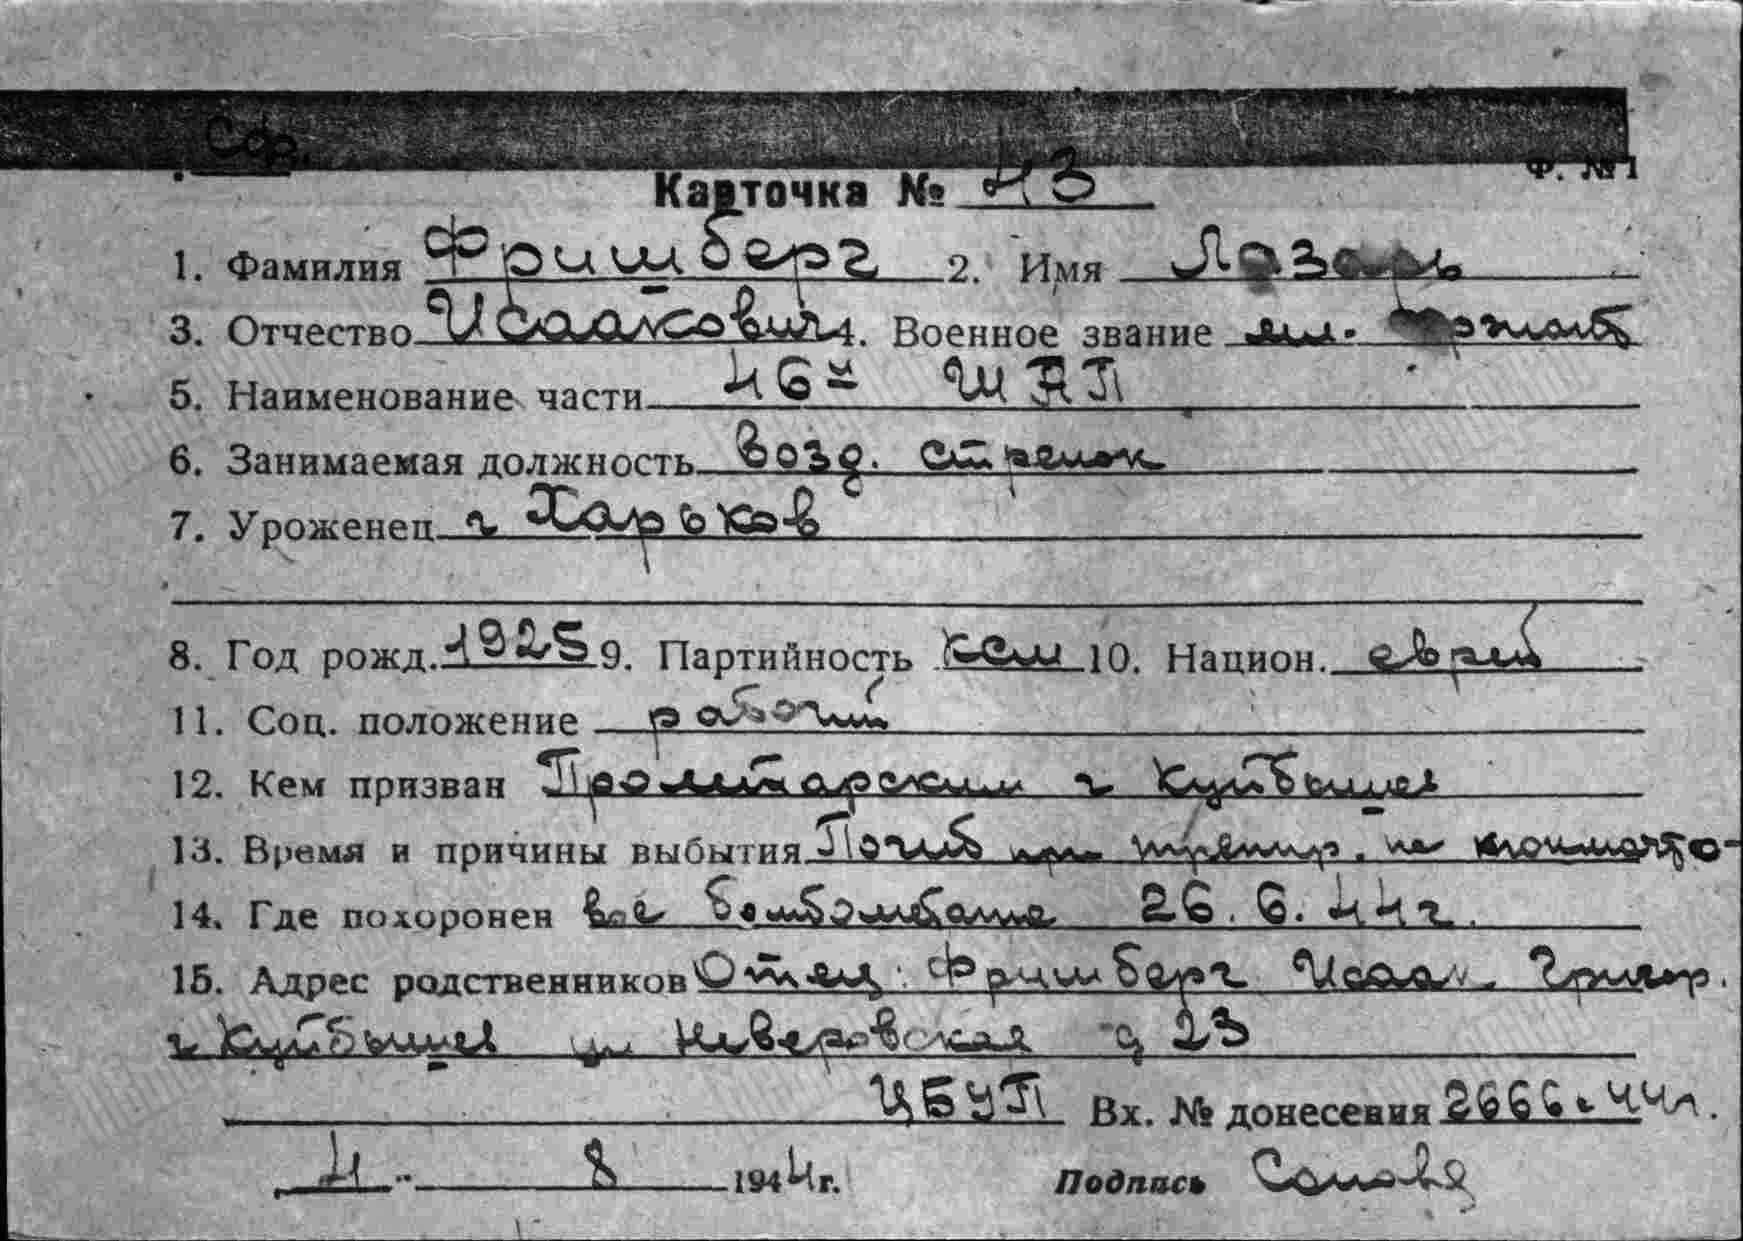 Сдр.
Ф. №1
Карточка № 43
1. Фамилия Фришберг 2. Имя Лазарь
3. Отчество Исаакович 4. Военное звание мл. сержант
5. Наименование части 46й ШАП
6. Занимаемая должность возд. стрелок
7. Уроженец г Харьков
8. Год рожд. 1925 9. Партийность ксм 10. Национ. еврей
11. Соц. положение рабочий
12. Кем призван Пролетарским г Куйбышев
13. Время и причины выбытия Погиб при тренир. на
14. Где похоронен бомбометание 26.6.44г.
15. Адрес родственников Отец: Фришберг Исаак. Григор.
г Куйбышев ул Неверовская д 23
ЦБУП Вх. № донесения 2666с 44г.
4 8 1944г. Подпись